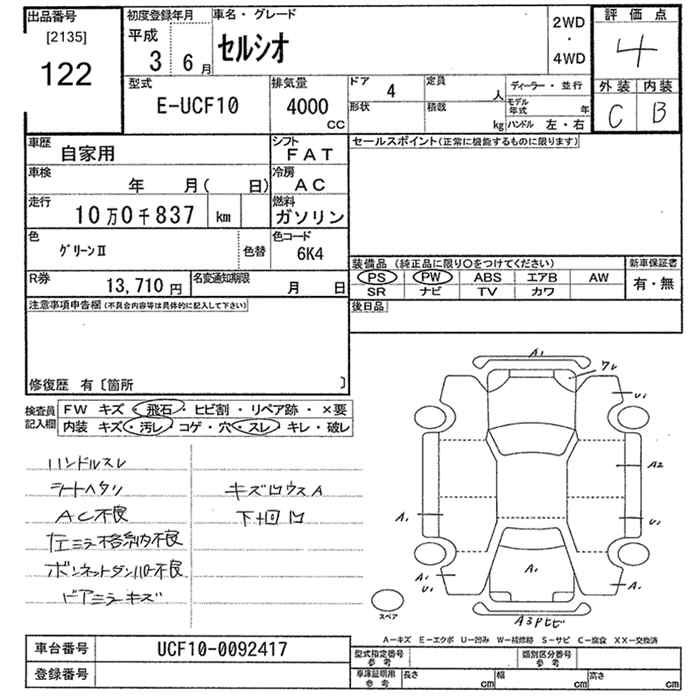 出品番号
[2135]
122
初度登録年月
平成
3 6月
車名・グレード
セルシオ
2WD
・
4WD
評価点
4
外装 内装
C B
型式
E-UCF10
排気量
4000
CC
ドア 4
形状
定員 人
積載 kg
ディーラー・並行
モデル年式 年
ハンドル 左・右
車歴
自家用
シフト
FAT
車検
年 月( 日)
冷房
AC
走行
10万0千837 km
燃料
ガソリン
色
グリーンII
色替
色コード
6K4
R券
13,710円
名変通知期限
月 日
セールスポイント(正常に機能するものに限ります)
装備品 (純正品に限り○をつけてください)
PS PW ABS エアB AW
SR ナビ TV カワ
新車保証書
有・無
後日品
注意事項申告欄(不具合内容等は具体的に記入して下さい)
修復歴 有〔箇所 〕
検査員記入欄
FW キズ・飛石・ヒビ割・リペア跡・×要
内装 キズ・汚レ・コゲ・穴・スレ・キレ・破レ
ハンドルスレ
シートヘタリ
AC不良
左ミラー格納不良
ボンネットダンパー不良
ドアミラーキズ
キズ凹ウスA
下廻凹
A1
ワレ
U1
A2
U1
A1
A1
U1
A1
A1
A3Pヒビ
スペア
A-キズ E-エクボ U-凹み W-補修跡 S-サビ C-腐食 XX-交換済
車台番号
UCF10-0092417
登録番号
型式指定番号
参考
類別区分番号
参考
車庫証明用
参考
長さ cm
幅 cm
高さ cm